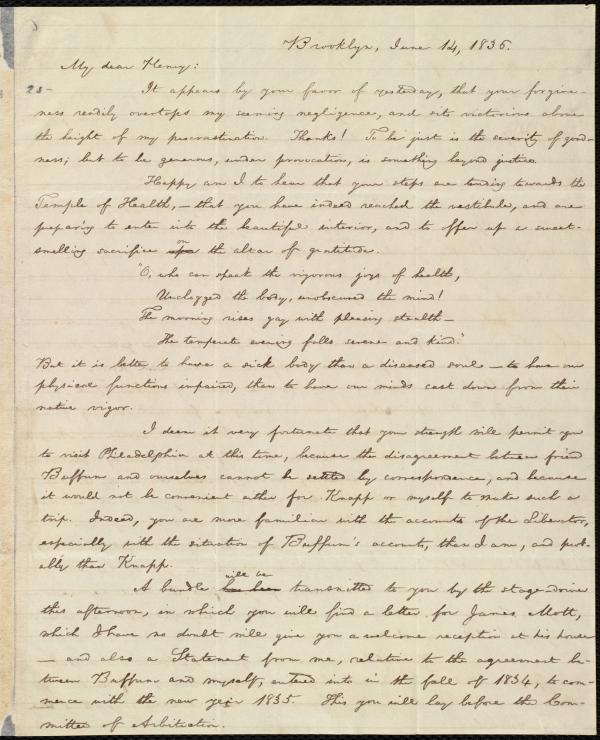 Brooklyn, June 14, 1836.
My dear Henry:
23- It appears by your favor of yesterday, that your forgive-
ness readily overtops my seeming negligence, and sits victorious above
the height of my procrastination. Thanks! To be just is the severity of good-
ness; but to be generous, under provocation, is something beyond justice.
Happy am I to hear that your steps are tending towards the
Temple of Health,—that you have indeed reached the vestibule, and are
preparing to enter into the beautiful interior, and to offer up a sweet-
smelling sacrifice upon on the altar of gratitude.
"O, who can speak the vigorous joys of health,
Unclogged the body, unobscured the mind!
The morning rises gay with pleasing stealth—
The temperate evening falls serene and kind."
But it is better to have a sick body than a diseased soul—to have our
physical functions impaired, than to have our minds cast down from their
native vigor.
I deem it very fortunate that your strength will permit you
to visit Philadelphia at this time, because the disagreement between friend
Buffum and ourselves cannot be settled by correspondence, and because
it would not be convenient either for Knapp or myself to make such a
trip. Indeed, you are more familiar with the accounts of the Liberator,
especially with the situation of Buffum's accounts, than I am, and prob-
ably than Knapp.
A bundle has been will be transmitted to you by the stage-driver
this afternoon, in which you will find a letter for James Mott,
which I have no doubt will give you a welcome reception at his house
—and also a Statement from me, relative to the agreement be-
tween Buffum and myself, entered into in the fall of 1834, to com-
mence with the new year 1835. This you will lay before the Com-
mittee of Arbitration.